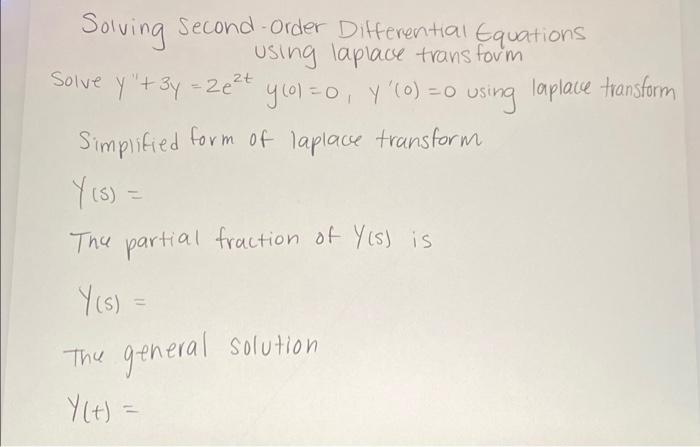 Solving Second-Order Differential Equations
using laplace transform
Solve y"+3y=2e^2t y(0)=0, y'(0)=0 using laplace transform
Simplified form of laplace transform
Y(s) =
The partial fraction of Y(s) is
Y(s) =
The general solution
Y(t) =